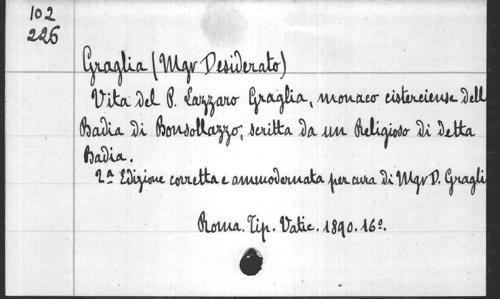 102
226
Graglia (Mgr Desiderato)
Vita del P. Lazzaro Graglia, monaco cisterciense dell
Badia di Bonsollazzo, scritta da un Religioso di detta
Badia.
2ª Edizione corretta e ammodernata per cura di Mgr D. Gragli
Roma. Tip. Vatic. 1890. 16º.